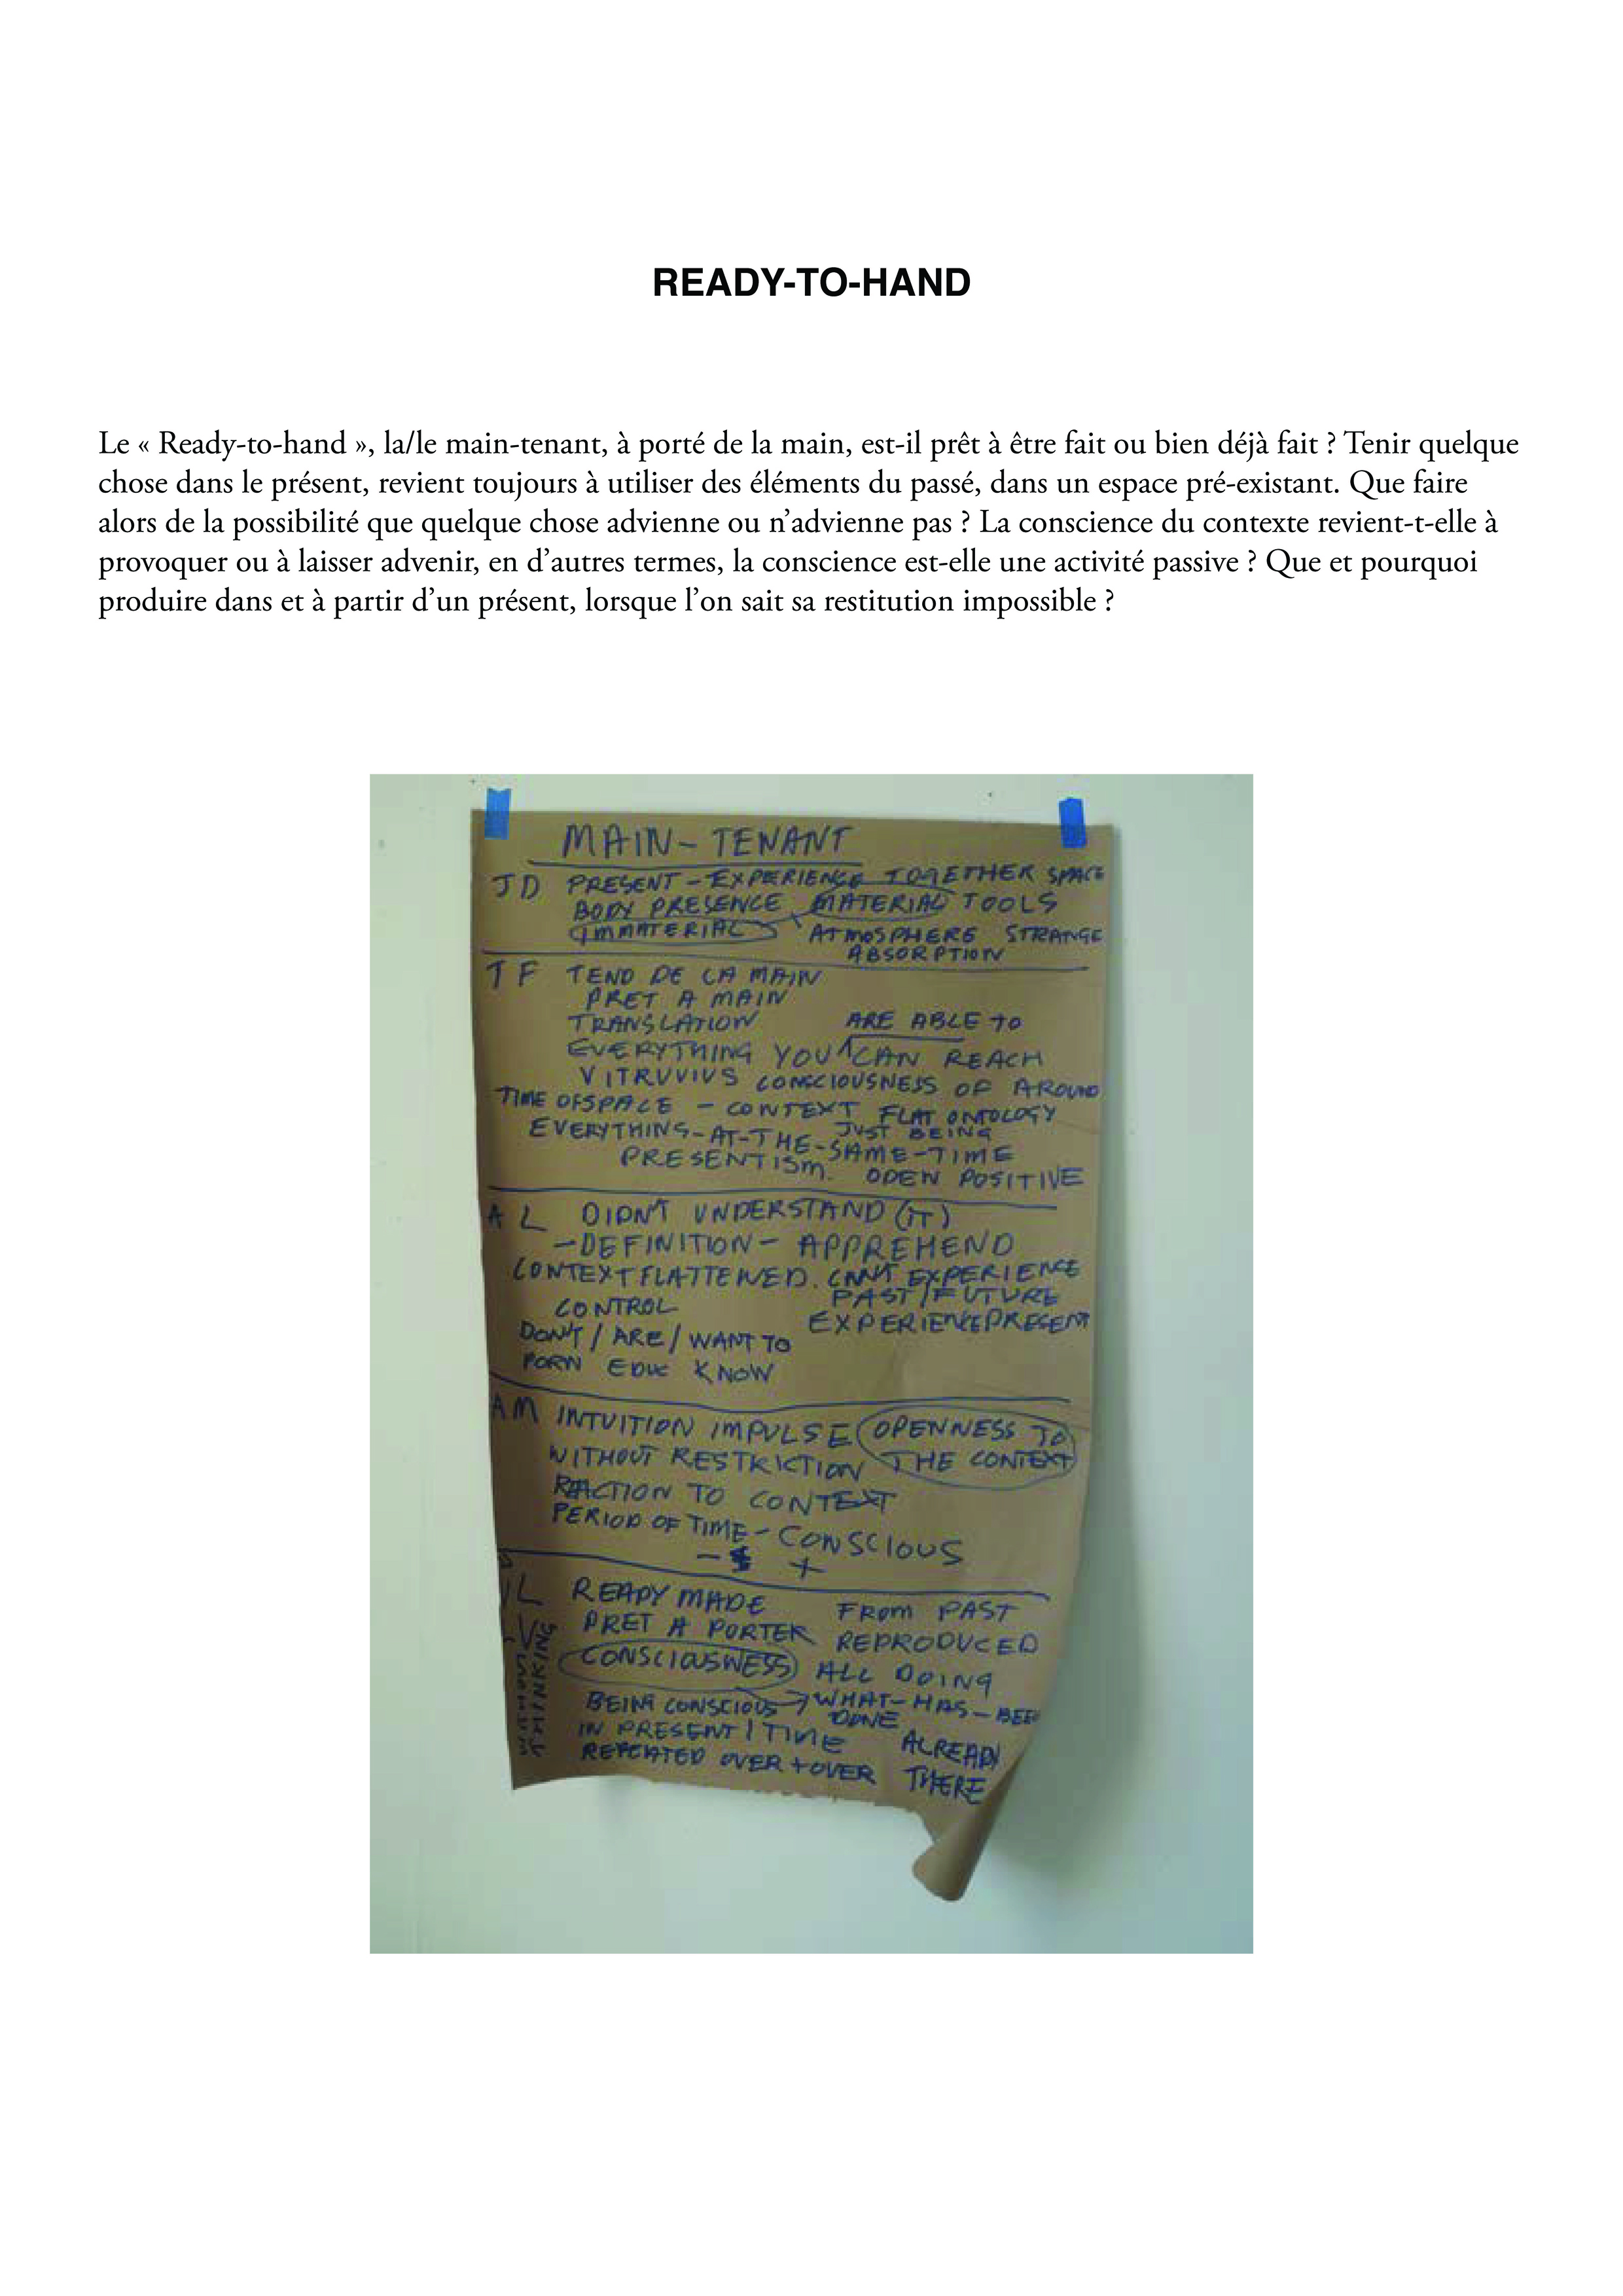 READY-TO-HAND
Le « Ready-to-hand », la/le main-tenant, à porté de la main, est-il prêt à être fait ou bien déjà fait ? Tenir quelque
chose dans le présent, revient toujours à utiliser des éléments du passé, dans un espace pré-existant. Que faire
alors de la possibilité que quelque chose advienne ou n’advienne pas ? La conscience du contexte revient-t-elle à
provoquer ou à laisser advenir, en d’autres termes, la conscience est-elle une activité passive ? Que et pourquoi
produire dans et à partir d’un présent, lorsque l’on sait sa restitution impossible ?
MAIN-TENANT
JD PRESENT-EXPERIENCE TOGETHER SPACE
BODY PRESENCE MATERIAL TOOLS
IMMATERIAL ATMOSPHERE STRANGE
ABSORPTION
TF TEND DE LA MAIN
PRET A MAIN
TRANSLATION ARE ABLE TO
EVERYTHING YOU CAN REACH
VITRUVIUS CONSCIOUSNESS OF AROUND
TIME OF SPACE - CONTEXT FLAT ONTOLOGY
JUST BEING
EVERYTHING-AT-THE-SAME-TIME
PRESENTISM. OPEN POSITIVE
AL DIDN'T UNDERSTAND (IT)
-DEFINITION- APPREHEND
CONTEXT FLATTENED. CAN'T EXPERIENCE
PAST/FUTURE
CONTROL EXPERIENCE PRESENT
DON'T / ARE / WANT TO
KNOW
AM INTUITION IMPULSE OPENNESS TO
WITHOUT RESTRICTION THE CONTEXT
REACTION TO CONTEXT
PERIOD OF TIME - CONSCIOUS
- $ +
L READY MADE FROM PAST
PRET A PORTER REPRODUCED
CONSCIOUSNESS ALL DOING
BEING CONSCIOUS WHAT-HAS-BEEN
DONE
IN PRESENT / TIME ALREADY
REPEATED OVER + OVER THERE
THINKING